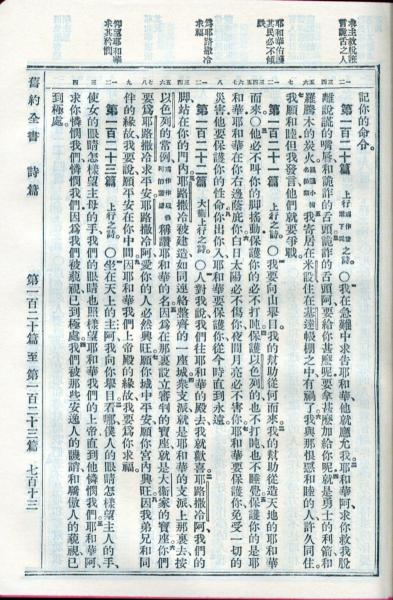 求主救脫離冒詭舌之人
耶和華佑護其民必不傾跌
爲耶路撒冷求福
仰望耶和華求其矜憫
記你的命令。
第一百二十篇 上行之詩。〇我在急難中求吿耶和華、他就應允我耶和華阿、求你救我脫
離說謊的嘴唇和詭詐的舌頭詭詐的舌頭阿、要給你甚麽呢要拿甚麽加給你呢就是勇士的利箭和
羅騰木的炭火我寄居在米設住在基達帳棚之中有禍了我與那恨惡和睦的人許久同住
我願和睦但我發言他們就要爭戰。
第一百二十一篇 上行之詩。〇我要向山舉目我的幫助從何而來我的幫助從造天地的耶和華
而來。〇他必不叫你的腳搖動保護你的必不打盹保護以色列的也不打盹也不睡覺保護你的是耶
和華耶和華在你右邊蔭庇你白日太陽必不傷你夜間月亮必不害你耶和華要保護你免受一切的
災害他要保護你的性命你出你入耶和華要保護你從今時直到永遠。
第一百二十二篇 大衞上行之詩。〇人對我說我們往耶和華的殿去我就歡喜耶路撒冷阿我們的
脚站在你的門內耶路撒冷被建造如同連絡整齊的一座城衆支派就是耶和華的支派上那裏去按
以色列的常例稱讚耶和華的名因爲在那裏設立審判的寶座就是大衞家的寶座你們
要爲耶路撒冷求平安耶路撒冷阿愛你的人必然興旺願你城中平安願你宮內興旺因我弟兄和同
伴的緣故我要說願平安在你中間因耶和華我們上帝殿的緣故我要爲你求福。
第一百二十三篇 上行之詩。〇坐在天上的主阿我向你舉目看哪僕人的眼睛怎樣望主人的手、
使女的眼睛怎樣望主母的手我們的眼睛也照樣望耶和華我們的上帝直到他憐憫我們耶和華阿、
求你憐憫我們憐憫我們因爲我們被藐視已到極處我們被那些安逸人的譏誚和驕傲人的藐視已
到極處。
舊約全書 詩篇 第一百二十篇至第一百二十三篇 七百十三